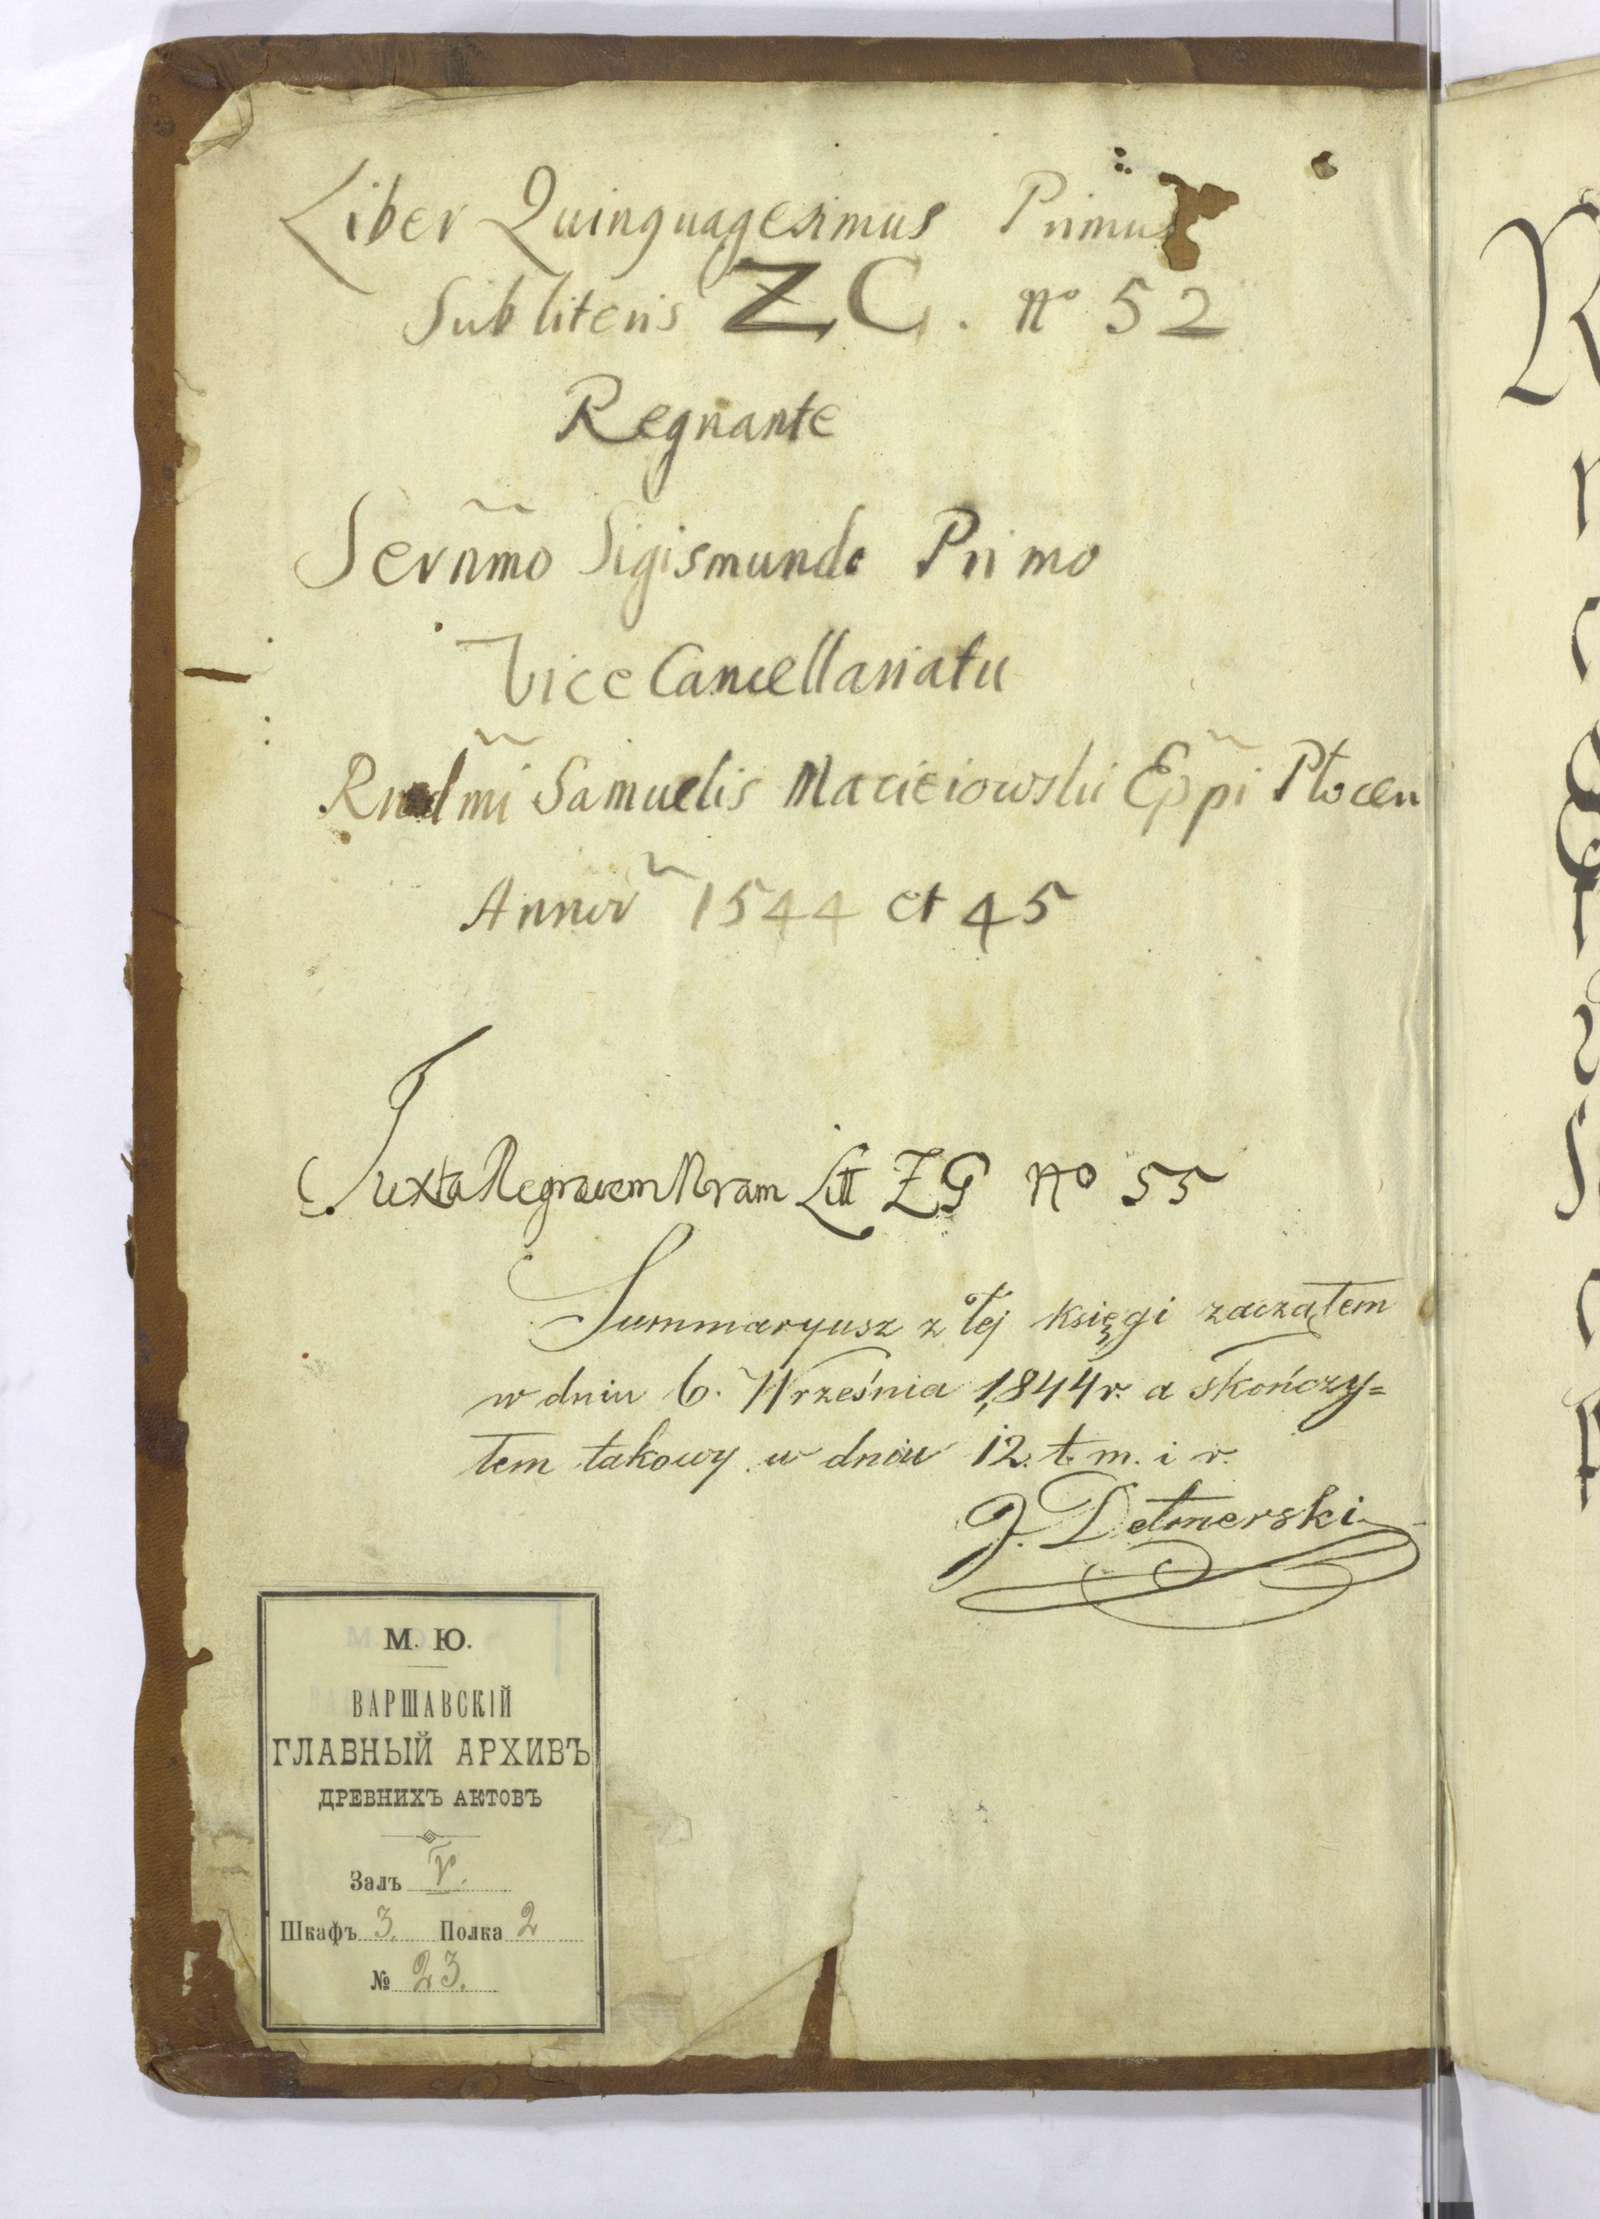 Liber Quinquagesimus Primus
Sub literis ZC. No 52
Regnante
Serñm̃o Sigismundo Primo
Vice Cancellariatu
Rndm̃i Samuelis Macieiowskii Epp̃i Płocen
Annor 1544 et 45
Juxta Regravem Nram Litt ZG No 55
Summaryusz z tej księgi zacząłem
w dniu 6. Września 1844 r. a skończy=
łem takowy w dniu 12. t. m. i r.
J. Detmerski
М. Ю.
ВАРШАВСКІЙ
ГЛАВНЫЙ АРХИВЪ
ДРЕВНИХЪ АКТОВЪ
Залъ V.
Шкафъ 3. Полка 2
№ 23.